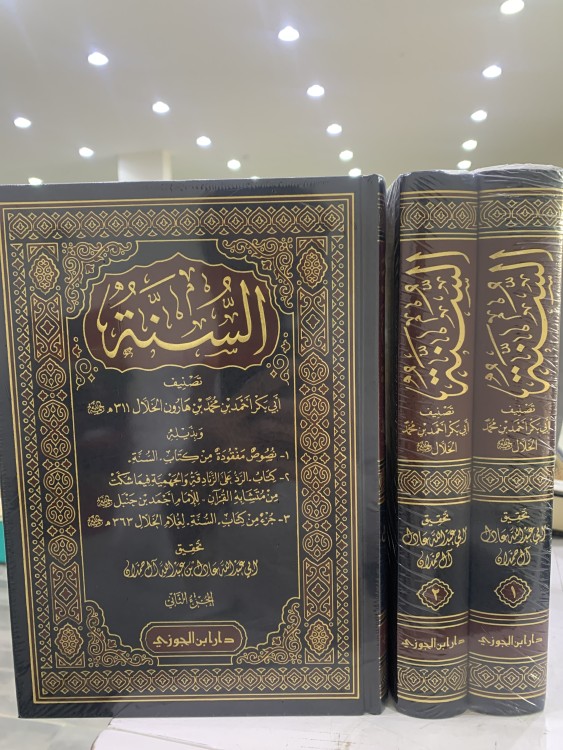 السُّنَّة
تصنيف
أبي بكر أحمد بن محمد بن هارون الخلال ٣١١ هـ رحمه الله
وبذيله
١- نصوص مفقودة من كتاب: السنة.
٢- كتاب: الرد على الزنادقة والجهمية فيما شكت
من متشابه القرآن - للإمام أحمد بن حنبل رحمه الله
٣- جزء من كتاب: السنة. لغلام الخلال ٣٦٣ هـ رحمه الله
تحقيق
أبي عبد الله عادل بن عبد الله آل حمدان
الجزء الثاني
دار ابن الجوزي
السُّنَّة
تصنيف
أبي بكر أحمد بن محمد
الخلال رحمه الله
تحقيق
أبي عبد الله عادل
آل حمدان
٢
دار ابن الجوزي
السُّنَّة
تصنيف
أبي بكر أحمد بن محمد
الخلال رحمه الله
تحقيق
أبي عبد الله عادل
آل حمدان
١
دار ابن الجوزي